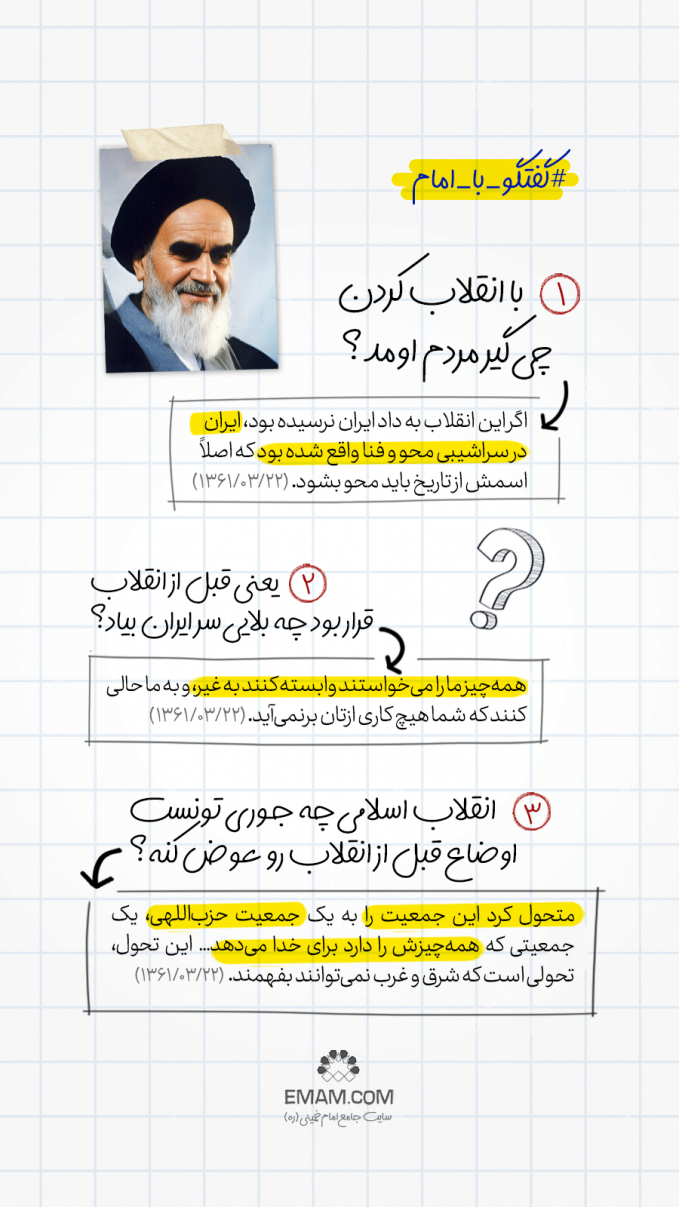 #گفتگو_با_امام
۱ با انقلاب کردن
چی گیر مردم اومد؟
اگر این انقلاب به داد ایران نرسیده بود، ایران
در سراشیبی محو و فنا واقع شده بود که اصلاً
اسمش از تاریخ باید محو بشود. (۱۳۶۱/۰۳/۲۲)
?
۲ یعنی قبل از انقلاب
قرار بود چه بلایی سر ایران بیاد؟
همه‌چیز ما را می‌خواستند وابسته کنند به غیر، و به ما حالی
کنند که شما هیچ کاری ازتان برنمی‌آید. (۱۳۶۱/۰۳/۲۲)
۳ انقلاب اسلامی چه جوری تونست
اوضاع قبل از انقلاب رو عوض کنه؟
متحول کرد این جمعیت را به یک جمعیت حزب‌اللهی، یک
جمعیتی که همه‌چیزش را دارد برای خدا می‌دهد... این تحول،
تحولی است که شرق و غرب نمی‌توانند بفهمند. (۱۳۶۱/۰۳/۲۲)
EMAM.COM
سایت جامع امام خمینی (ره)